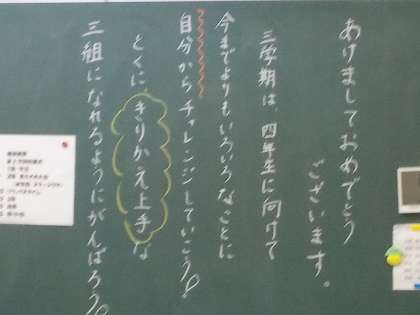 あけましておめでとう
ございます。
三学期は四年生に向けて
今までよりもいろいろなことに
自分からチャレンジしていこう!
とくにきりかえ上手な
三組になれるようにがんばろう!